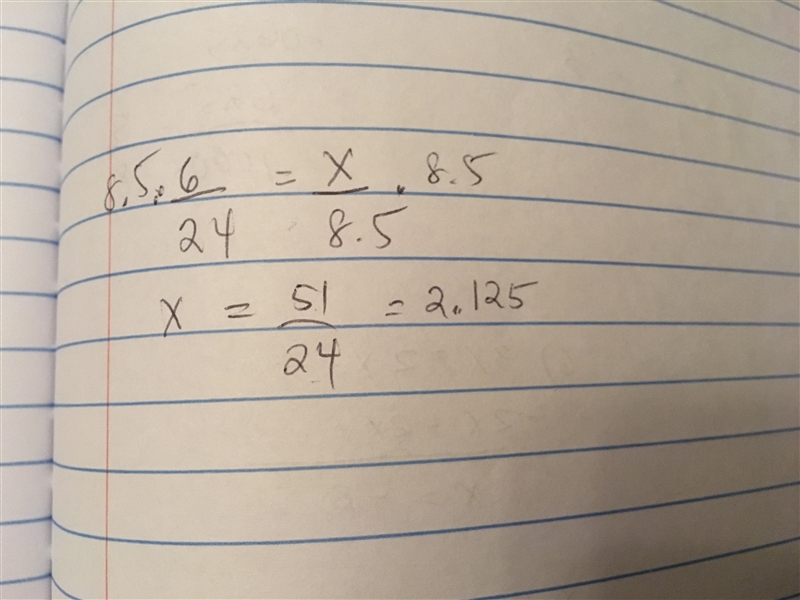 8.5 · 6/24 = x/8.5 · 8.5
x = 51/24 = 2.125